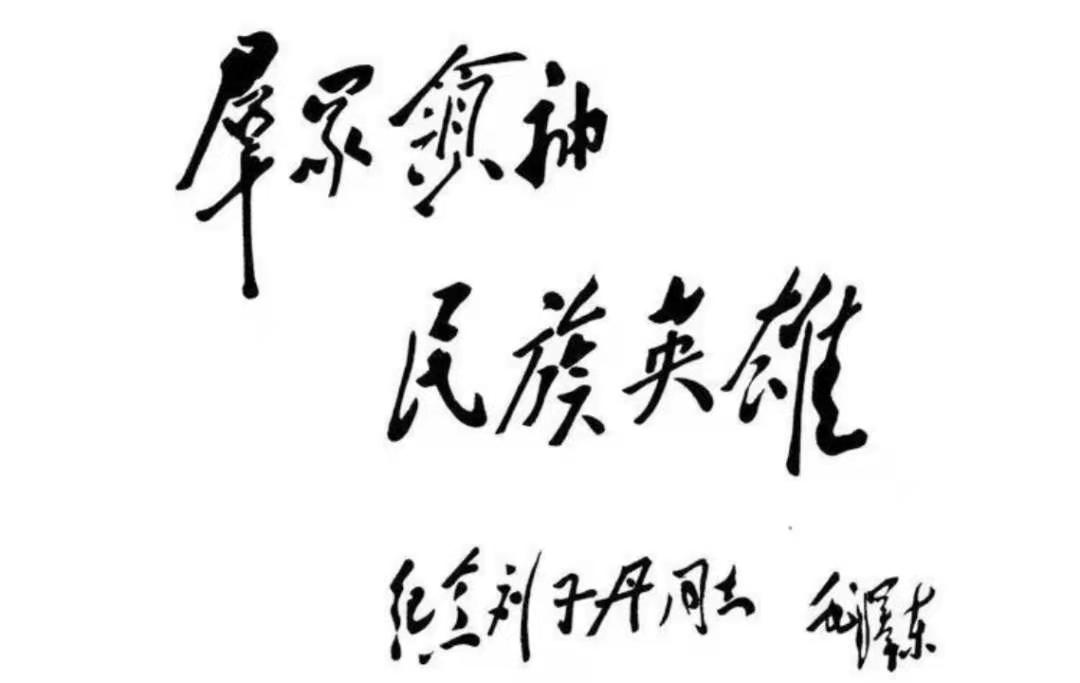 羣眾領袖
民族英雄
纪念刘子丹同志 毛泽东